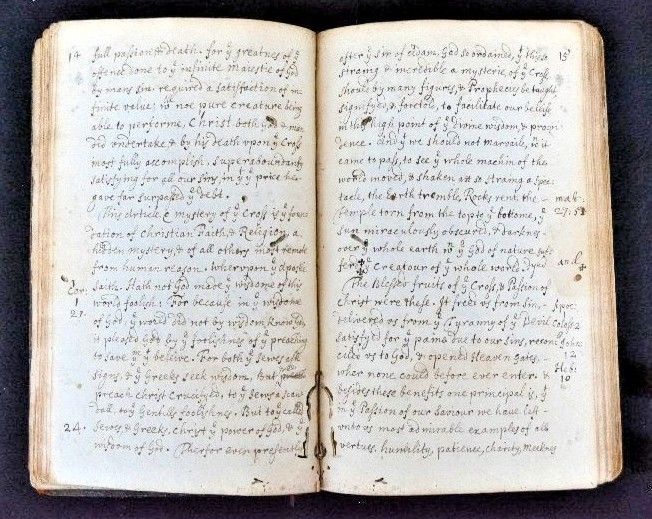 14
full passion & death. for yͤ greatnes of yͤ
offence done to yͤ infinite Maiestie of God
by mans sin. required a satisfaction of in-
finite value: wͨͪ noe pure creature being
able to performe, Christ both God & man
did undertake & by his death vpon yͤ Cross
most fully accomplish. Superaboundantly
satisfying for all our sins, in yͭ yͤ price hee
gave far surpassed yͤ debt.
This article & mystery of yͤ Cross is yͤ foun-
dation of Christian Faith, & Religion, a
hidden mystery, & of all others most remote
from human reason. whervpon yͤ Apostle
Cor. saith. Hath not God made yͤ wisdome of this
1 world foolish: For because in yͤ wisdome
21. of God yͤ world did not by wisdom know God,
it pleased God by yͤ foolishnes of yͤ preaching
to save yͫ yͭ beleive. For both yͤ Jewes ask
signs, & yͤ Greeks seek wisdom. But
preach Christ Crucifyed, to yͤ Jewes a scan-
dall, to yͤ Gentills foolishnes. But to yͤ called
24. Jewes & Greeks, Christ yͤ power of God, & yͤ
wisdom of God. Therfor even presently
15
after yͤ sin of Adam, God so ordained, yͭ this so
strang & incredible a mysterie, of yͤ Cross
should by many figures, & Prophecies be taught
signifyed, & foretold, to facilitate our beleife
in this high point of yͤ divine wisdom, & provi-
dence. And yͭ we should not marvaile, wͣ it
came to pass, to see yͤ whole machin of the
world moved, & shaken att so strang a Spec-
tacle, the Earth tremble, Rocks rent the - mat:
Temple torn from the top to yͤ bottome, yͤ 27. 51
Sun miraculously obscured, & darknes-
over yͤ whole earth wͭͪ yͤ God of nature suf-
fered, yͤ Creatour of yͤ whole world dyed. And
The Blessed fruits of yͤ Cross, & Passion of
Christ were these. It frees vs from Sin, Apoc:
delivered vs from yͤ Tyranny of yͤ Devil Coloss: 2
satisfyed for yͤ pains due to our sins, recon- John
ciled vs to God, & opened Heaven gates, 12
wher none could before ever enter. & Heb:
besides these benefits one principal is, yͭ 10
in yͤ Passion of our Saviour we have left
vnto vs most admirable examples of all
vertues, humility, patience, charity, Meeknes